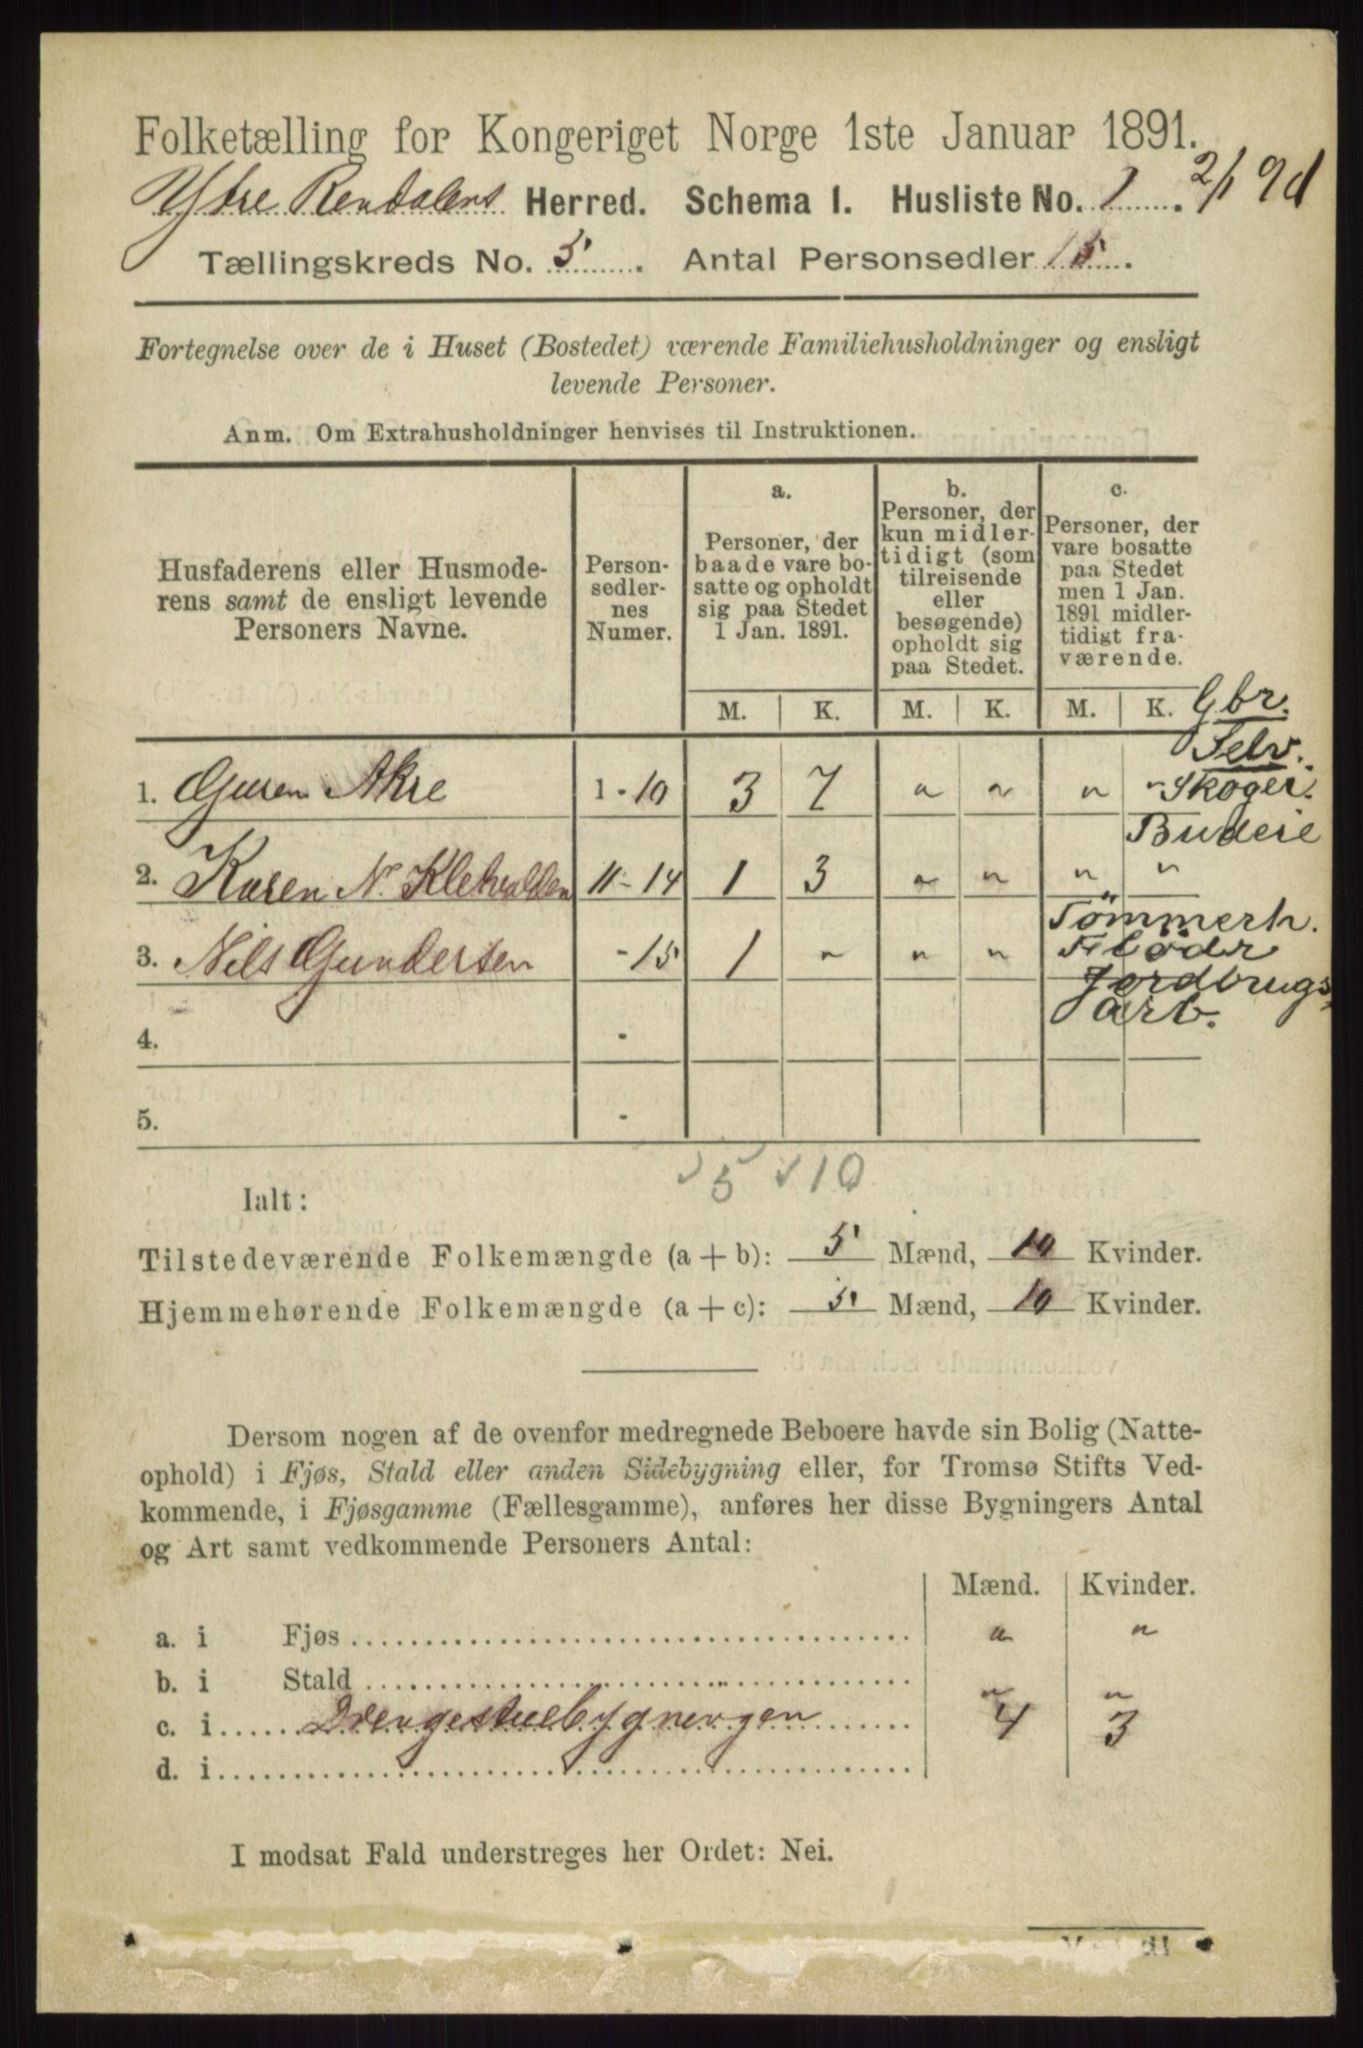 Folketælling for Kongeriget Norge 1ste Januar 1891.
Ytre Rendalens Herred. Schema 1. Husliste No. 1. 2/1 91
Tællingskreds No. 5. Antal Personsedler 15.
Fortegnelse over de i Huset (Bostedet) værende Familiehusholdninger og ensligt
levende Personer.
Anm. Om Extrahusholdninger henvises til Instruktionen.
Husfaderens eller Husmode-
rens samt de ensligt levende
Personers Navne.
Person-
sedler-
nes
Numer.
a.
Personer, der
baade vare bo-
satte og opholdt
sig paa Stedet
1 Jan. 1891.
b.
Personer, der
kun midler-
tidigt (som
tilreisende
eller
besøgende)
opholdt sig
paa Stedet.
c.
Personer, der
vare bosatte
paa Stedet
men 1 Jan.
1891 midler-
tidigt fra-
værende.
M. K. M. K. M. K. Gbr.
Selv.
1. Akre 1-10 3 7 " " " " Skoger.
Budeie
2. Karen N. 11-14 1 3 " " " "
Tömmerh.
3. Nils Gundersen -15 1 " " " " Flödr
Jordbrugs
arb.
4. -
5. -
5 10
Ialt:
Tilstedeværende Folkemængde (a + b): 5 Mænd, 10 Kvinder.
Hjemmehørende Folkemængde (a + c): 5 Mænd, 10 Kvinder.
Dersom nogen af de ovenfor medregnede Beboere havde sin Bolig (Natte-
ophold) i Fjøs, Stald eller anden Sidebygning eller, for Tromsø Stifts Ved-
kommende, i Fjøsgamme (Fællesgamme), anføres her disse Bygningers Antal
og Art samt vedkommende Personers Antal:
Mænd. Kvinder.
a. i Fjøs " "
b. i Stald " "
c. i Drengestuebygningen 4 3
d. i
I modsat Fald understreges her Ordet: Nei.